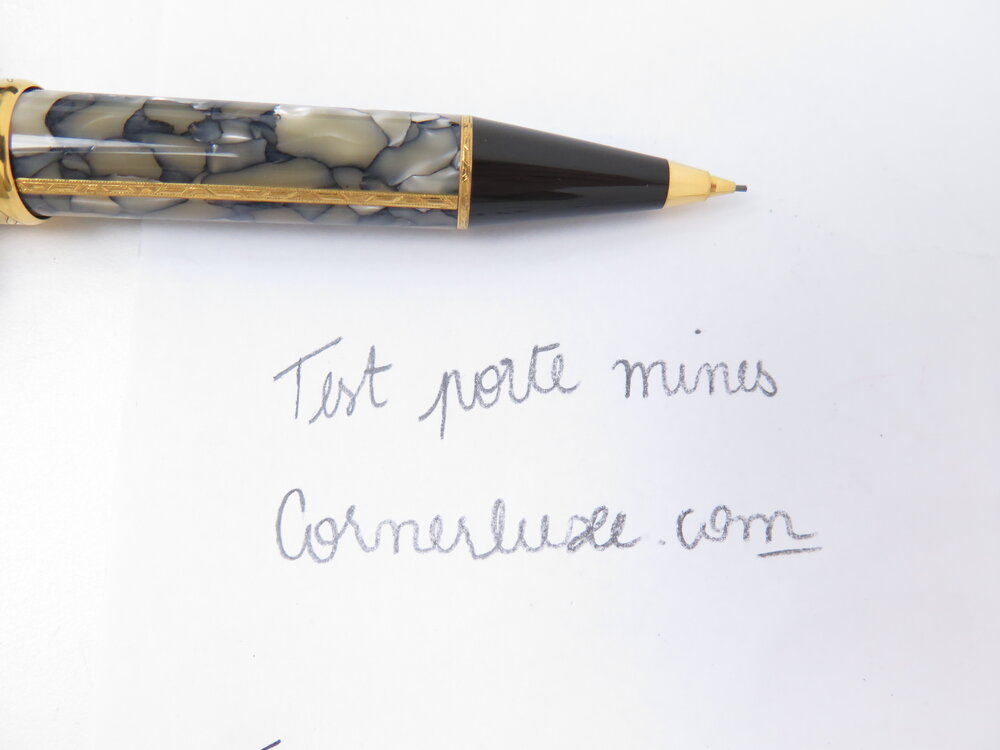 Test porte mines
Cornerluxe.com